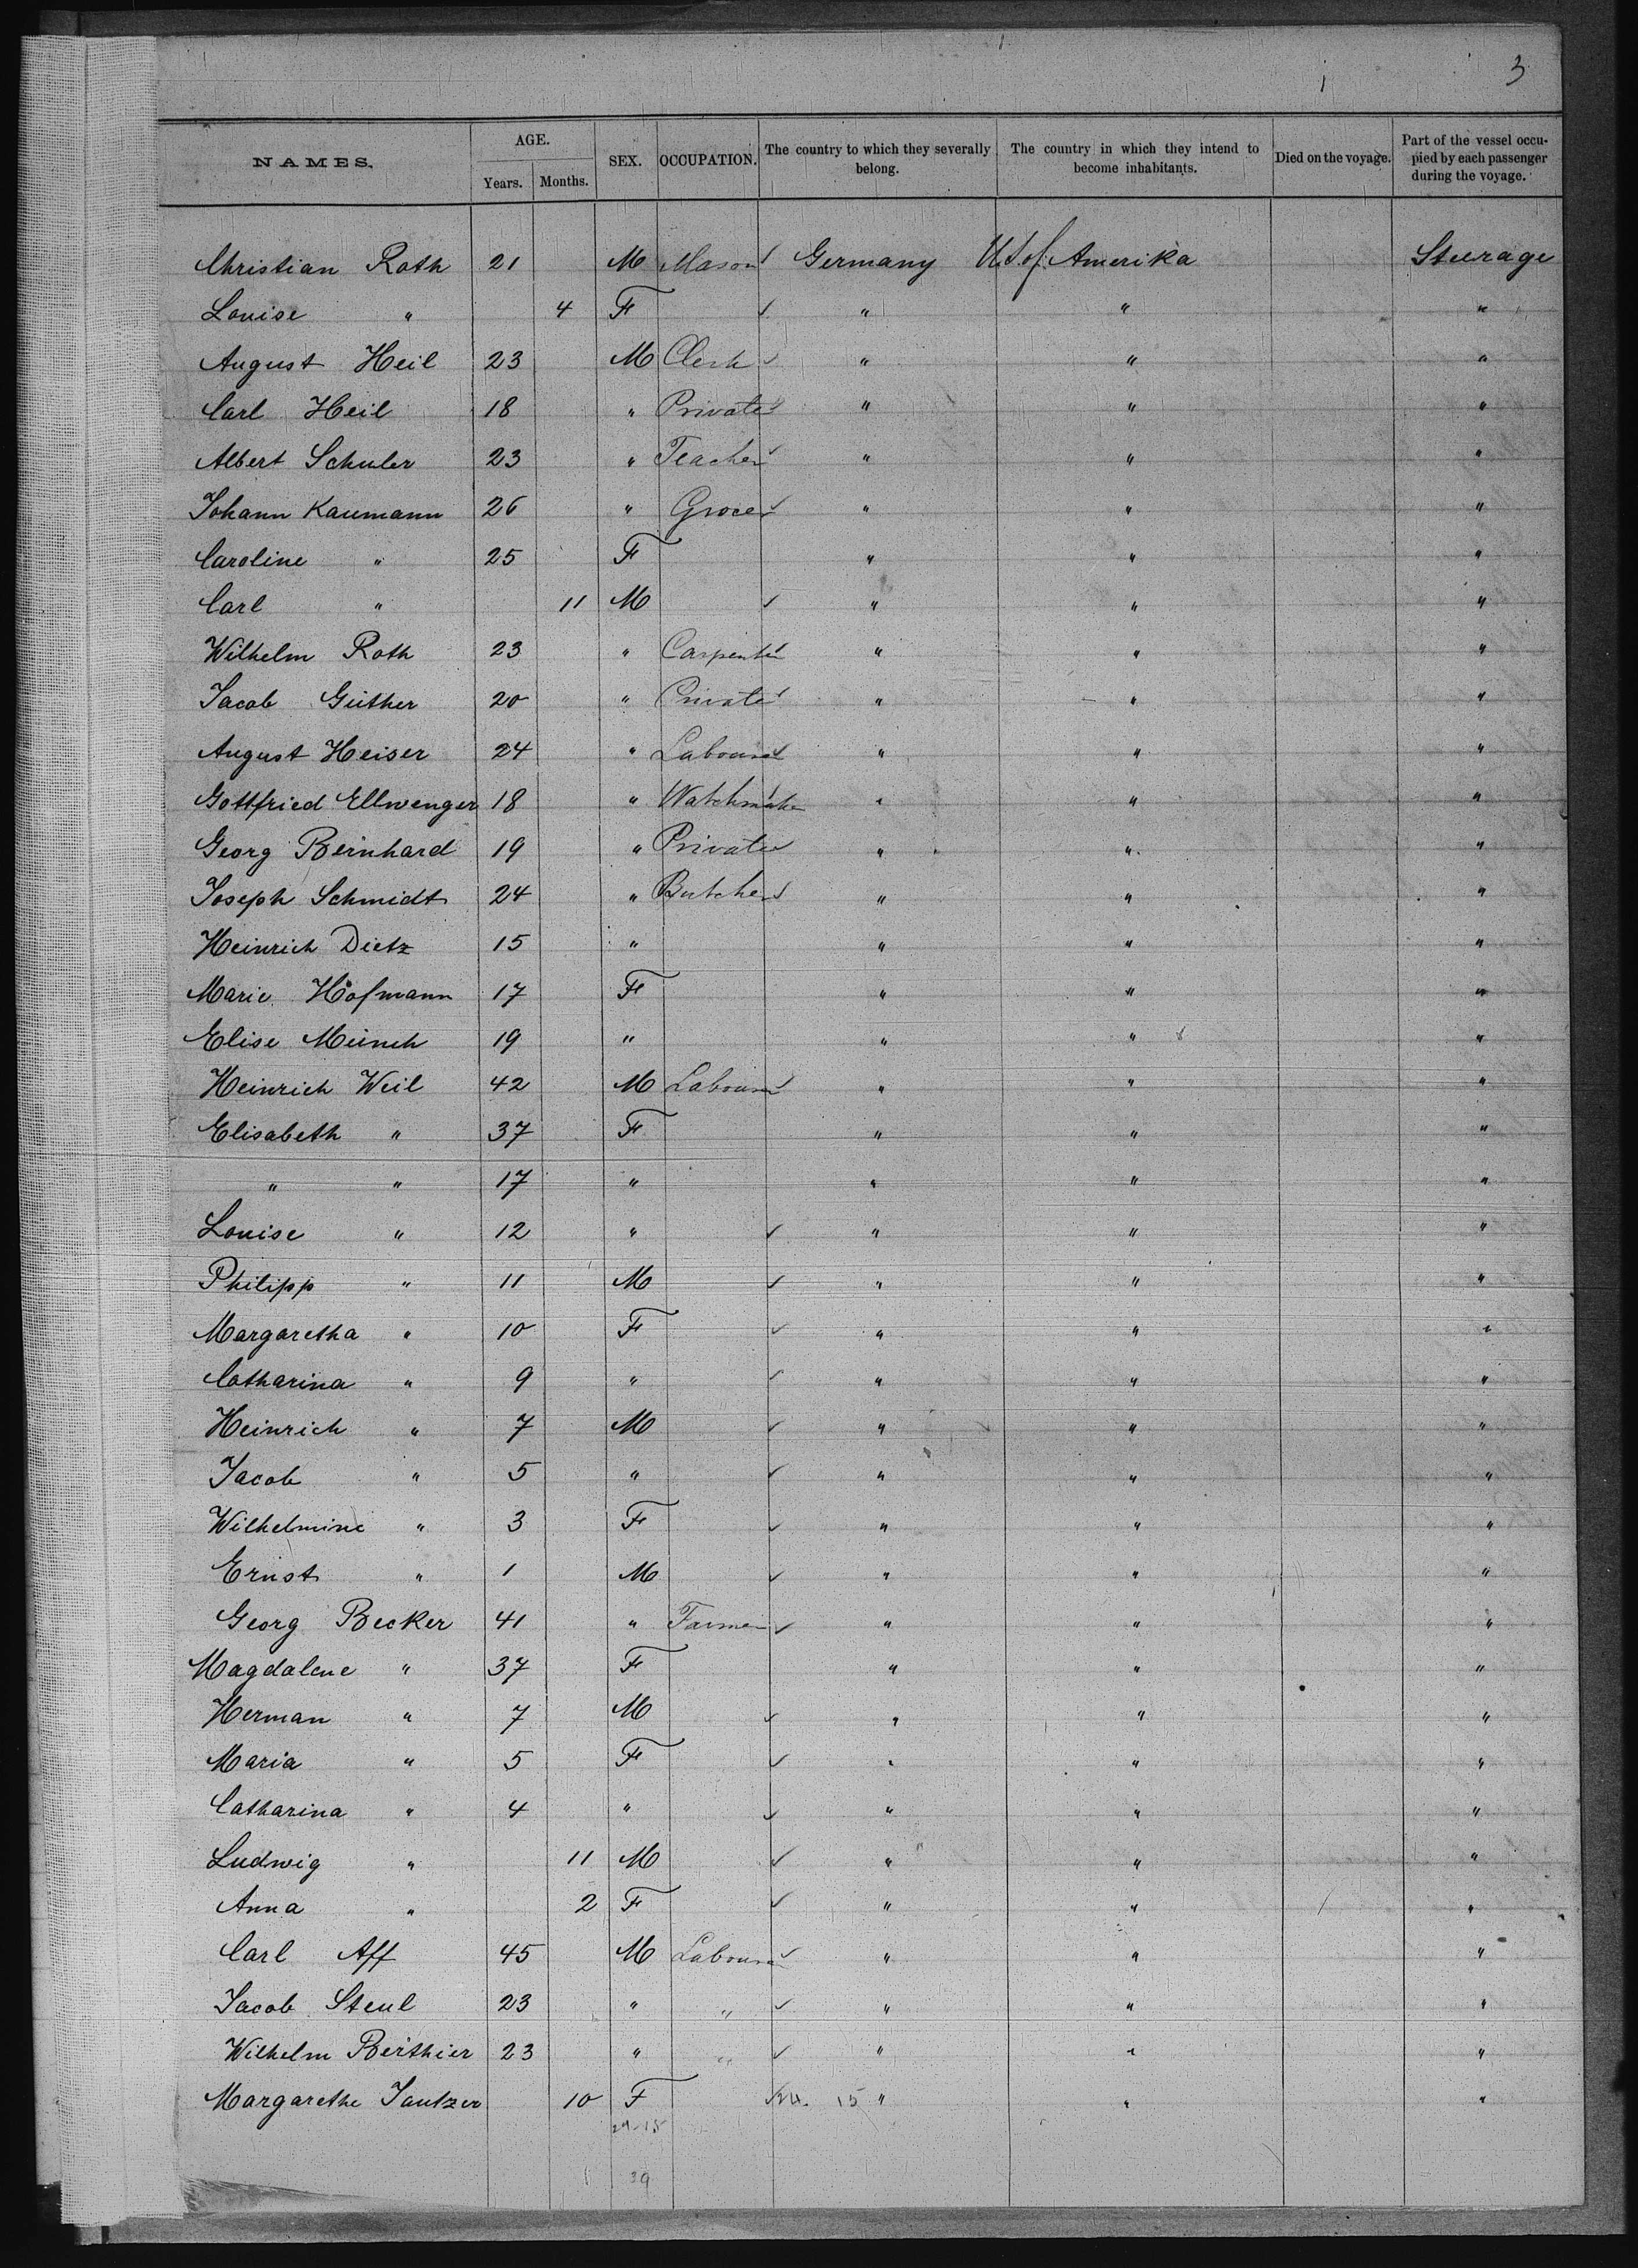 3
NAMES. AGE. Years. Months. SEX. OCCUPATION. The country to which they severally belong. The country in which they intend to become inhabitants. Died on the voyage. Part of the vessel occupied by each passenger during the voyage.
Christian Roth 21 M Mason Germany U.S. of Amerika Steerage
Louise " 4 F " " "
August Heil 23 M Clerk " " "
Carl Heil 18 " Private " " "
Albert Schuler 23 " Teacher " " "
Johann Kaumann 26 " Grocer " " "
Caroline " 25 F " " "
Carl " 11 M " " "
Wilhelm Roth 23 " Carpenter " " "
Jacob Güther 20 " Private " " "
August Heiser 24 " Labourer " " "
Gottfried Ellwenger 18 " Watchmaker " " "
Georg Bernhard 19 " Private " " "
Joseph Schmidt 24 " Butcher " " "
Heinrich Dietz 15 " " " "
Marie Hofmann 17 F " " "
Elise Münch 19 " " " "
Heinrich Weil 42 M Labourer " " "
Elisabeth " 37 F " " "
" " 17 " " " "
Louise " 12 " " " "
Philipp " 11 M " " "
Margaretha " 10 F " " "
Catharina " 9 " " " "
Heinrich " 7 M " " "
Jacob " 5 " " " "
Wilhelmine " 3 F " " "
Ernst " 1 M " " "
Georg Becker 41 " Farmer " " "
Magdalene " 37 F " " "
Herman " 7 M " " "
Maria " 5 F " " "
Catharina " 4 " " " "
Ludwig " 11 M " " "
Anna " 2 F " " "
Carl Aff 45 M Labourer " " "
Jacob Steul 23 " " " " "
Wilhelm Berthier 23 " " " " "
Margarethe Jautzer 10 F 24. 15 " " "
24-15
39